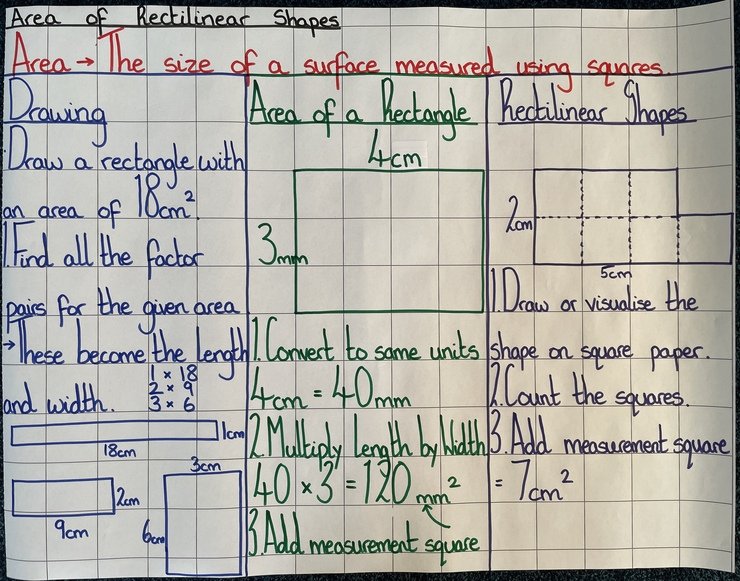 Area of Rectilinear Shapes
Area → The size of a surface measured using squares.
Drawing
Draw a rectangle with
an area of 18cm².
1.Find all the factor
pairs for the given area
→These become the length
and width.
1 × 18
2 × 9
3 × 6
1cm
18cm
2cm
9cm
3cm
6cm
Area of a Rectangle
4cm
3mm
1.Convert to same units
4cm = 40mm
2.Multiply Length by Width
40 × 3 = 120mm²
3.Add measurement square
Rectilinear Shapes
2cm
5cm
1.Draw or visualise the
shape on square paper.
2.Count the squares.
3.Add measurement square
= 7cm²